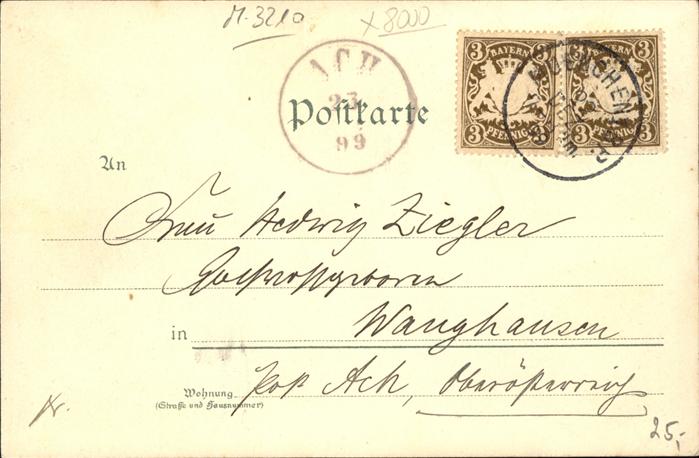 M-3210 x8000
ACH
23
99
Postkarte
BAYERN
3 3
PFENNIG
BAYERN
3 3
PFENNIG
MUENCHEN
An
Frau Hedwig Ziegler
Hochwohlgeboren
in Wanghausen
Wohnung
(Straße und Hausnummer)
Post Ach, Oberösterreich
25,-